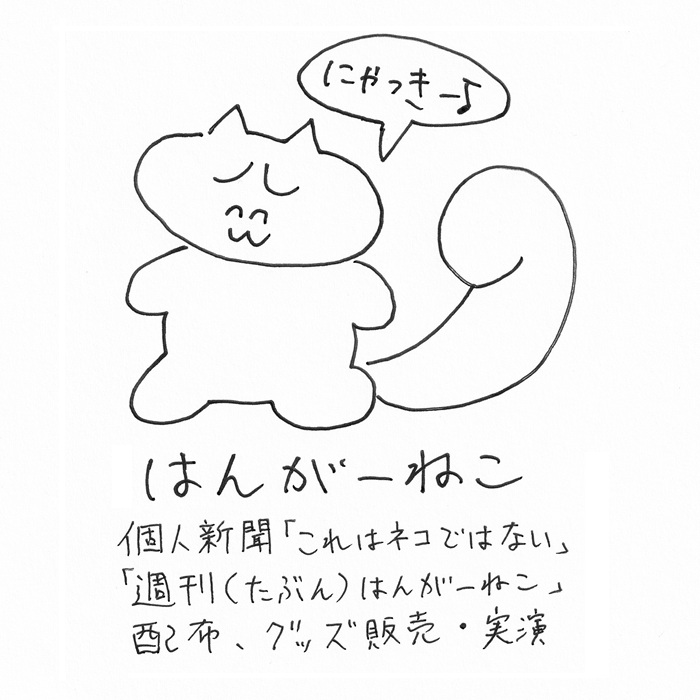 にゃっきー♪
はんがーねこ
個人新聞「これはネコではない」
「週刊(たぶん)はんがーねこ」
配布、グッズ販売・実演